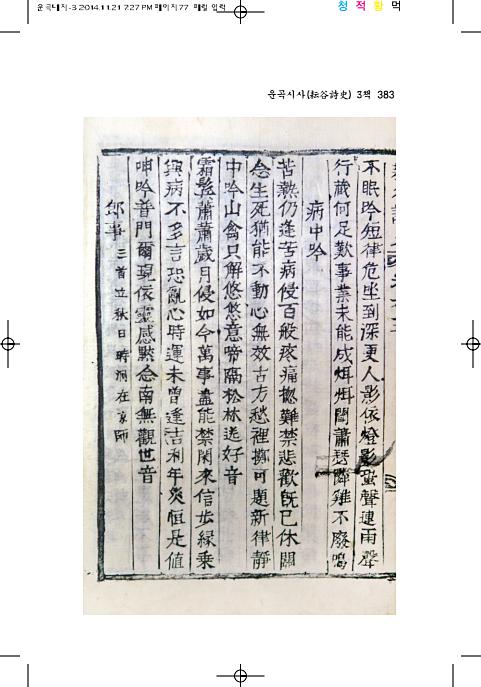 운곡시사(耘谷詩史) 3책 383
청 적 황 먹
不眠吟短律危坐到深更人影依燈影蛩聲連雨聲
行藏何足歎事業未能成烱烱
蕭瑟隣雞不廢鳴
病中吟
苦熱仍逢苦病侵百般疼痛揔難禁悲歡旣已休關
念生死猶能不動心無效古方愁裡擲可題新律靜
中吟山禽只解悠悠意啼隔松林送好音
霜鬢蕭蕭歲月侵如今萬事盡能禁閑來信步緣
乘
興病不多言恐亂心時運未曾逢吉利年災恒是値
呻吟普門爾現依靈感黙念南無觀世音
卽事 三首立秋日時
在京師